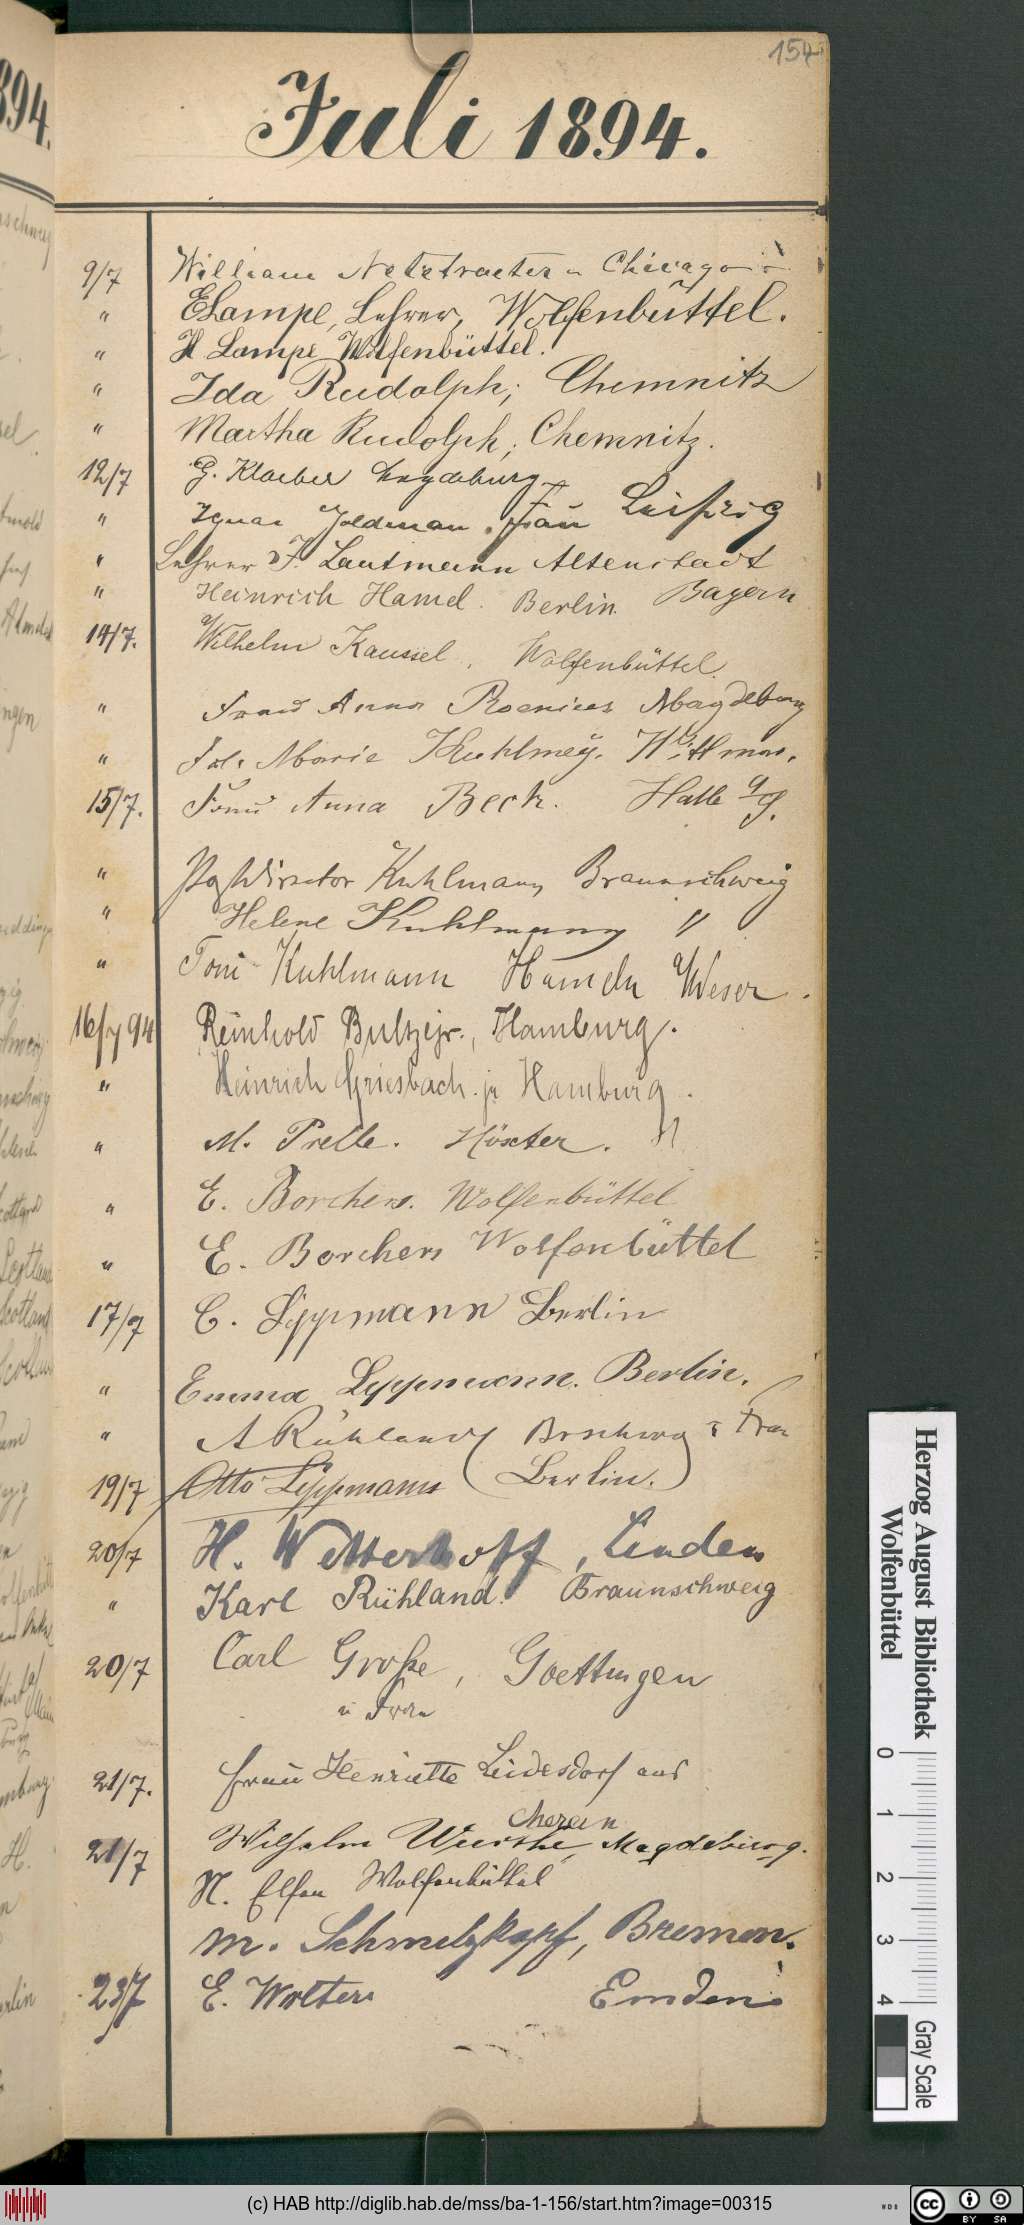 154
Juli 1894.
9/7 William Chicago
" E Lampe, Lehrer, Wolfenbüttel.
" H Lampe Wolfenbüttel.
" Ida Rudolph; Chemnitz
" Martha Rudolph; Chemnitz.
12/7 G. Klaeber Magdeburg
" Ignaz Goldman u. Frau Leipzig
" Lehrer J. Lautmann Altenstadt
" Heinrich Hamel. Berlin Bayern
14/7. Wilhelm Kaussel, Wolfenbüttel.
" Frau Anna Magdeburg
" Marie Kuhlmey.
15/7. Frau Anna Beck. Halle a/S.
" Kuhlmann Braunschweig
" Helene Kuhlmann "
" Toni Kuhlmann Hameln a/Weser.
16/7 94 Reinhold Bultze jr., Hamburg.
" Heinrich Griesbach jr Hamburg.
" M. Prelle. Höxter.
" E. Borchers. Wolfenbüttel
" E. Borchers Wolfenbüttel
17/7 C. Lippmann Berlin
" Emma Lippmann. Berlin.
" A Rühland Brschwg u Frau
19/7 Otto Lippmann (Berlin.)
20/7 H. Wetterhoff, Linden
" Karl Rühland. Braunschweig
20/7 Carl Große, Goettingen
u Frau
21/7. Frau Henriette Leidesdorf aus
21/7 Wilhelm Magdeburg.
N. Elfen Wolfenbüttel
M. Schmelzkopf, Bremen.
23/7 E. Wolters Emden
Herzog August Bibliothek
Wolfenbüttel
0 1 2 3 4
Gray Scale
(c) HAB http://diglib.hab.de/mss/ba-1-156/start.htm?image=00315
WDB
CC BY SA